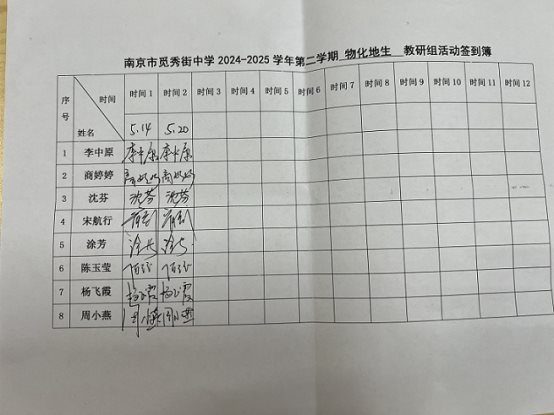 南京市觅秀街中学 2024-2025 学年第二学期 物化地生 教研组活动签到簿
序号 时间 姓名 时间 1 时间 2 时间 3 时间 4 时间 5 时间 6 时间 7 时间 8 时间 9 时间 10 时间 11 时间 12
5.14 5.20
1 李中原 李中原 李中原
2 商婷婷 商婷婷 商婷婷
3 沈芬 沈芬 沈芬
4 宋航行
5 涂芳
6 陈玉莹
7 杨飞霞 杨飞霞 杨飞霞
8 周小燕 周小燕 周小燕